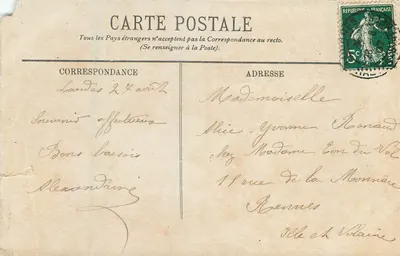 CARTE POSTALE
Tous les Pays étrangers n'acceptent pas la Correspondance au recto.
(Se renseigner à la Poste).
RÉPUBLIQUE FRANÇAISE
5c
CORRESPONDANCE
ADRESSE
27 août
Souvenir affectueux
Bons baisers
Alexandrine
Mademoiselle
Alice Yvonne Renaud
chez Madame Eon du Val
11 rue de la Monnaie
Rennes
Ille et Vilaine